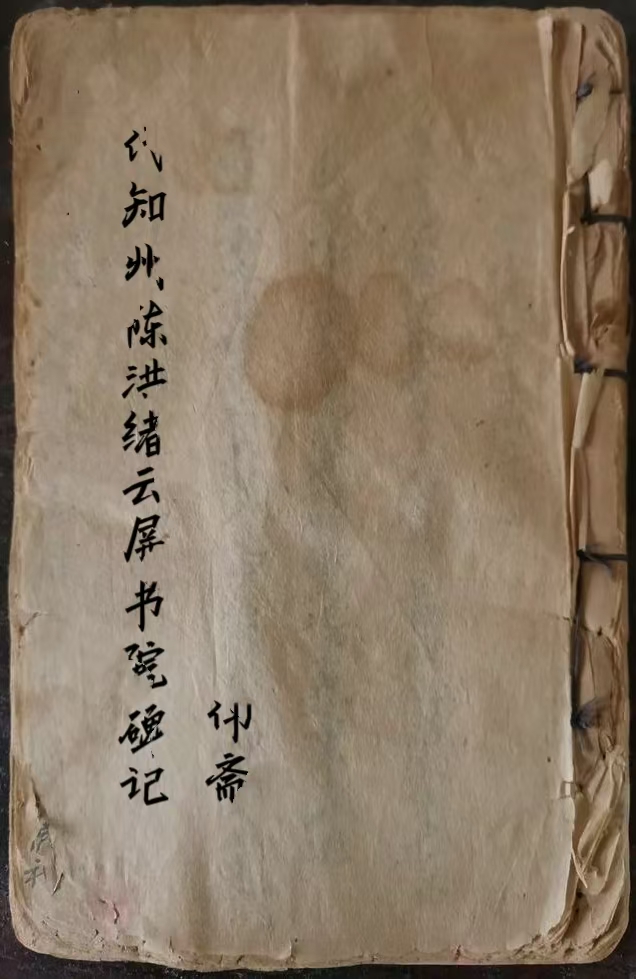 代知州陈洪绪云屏书院碑记
斋